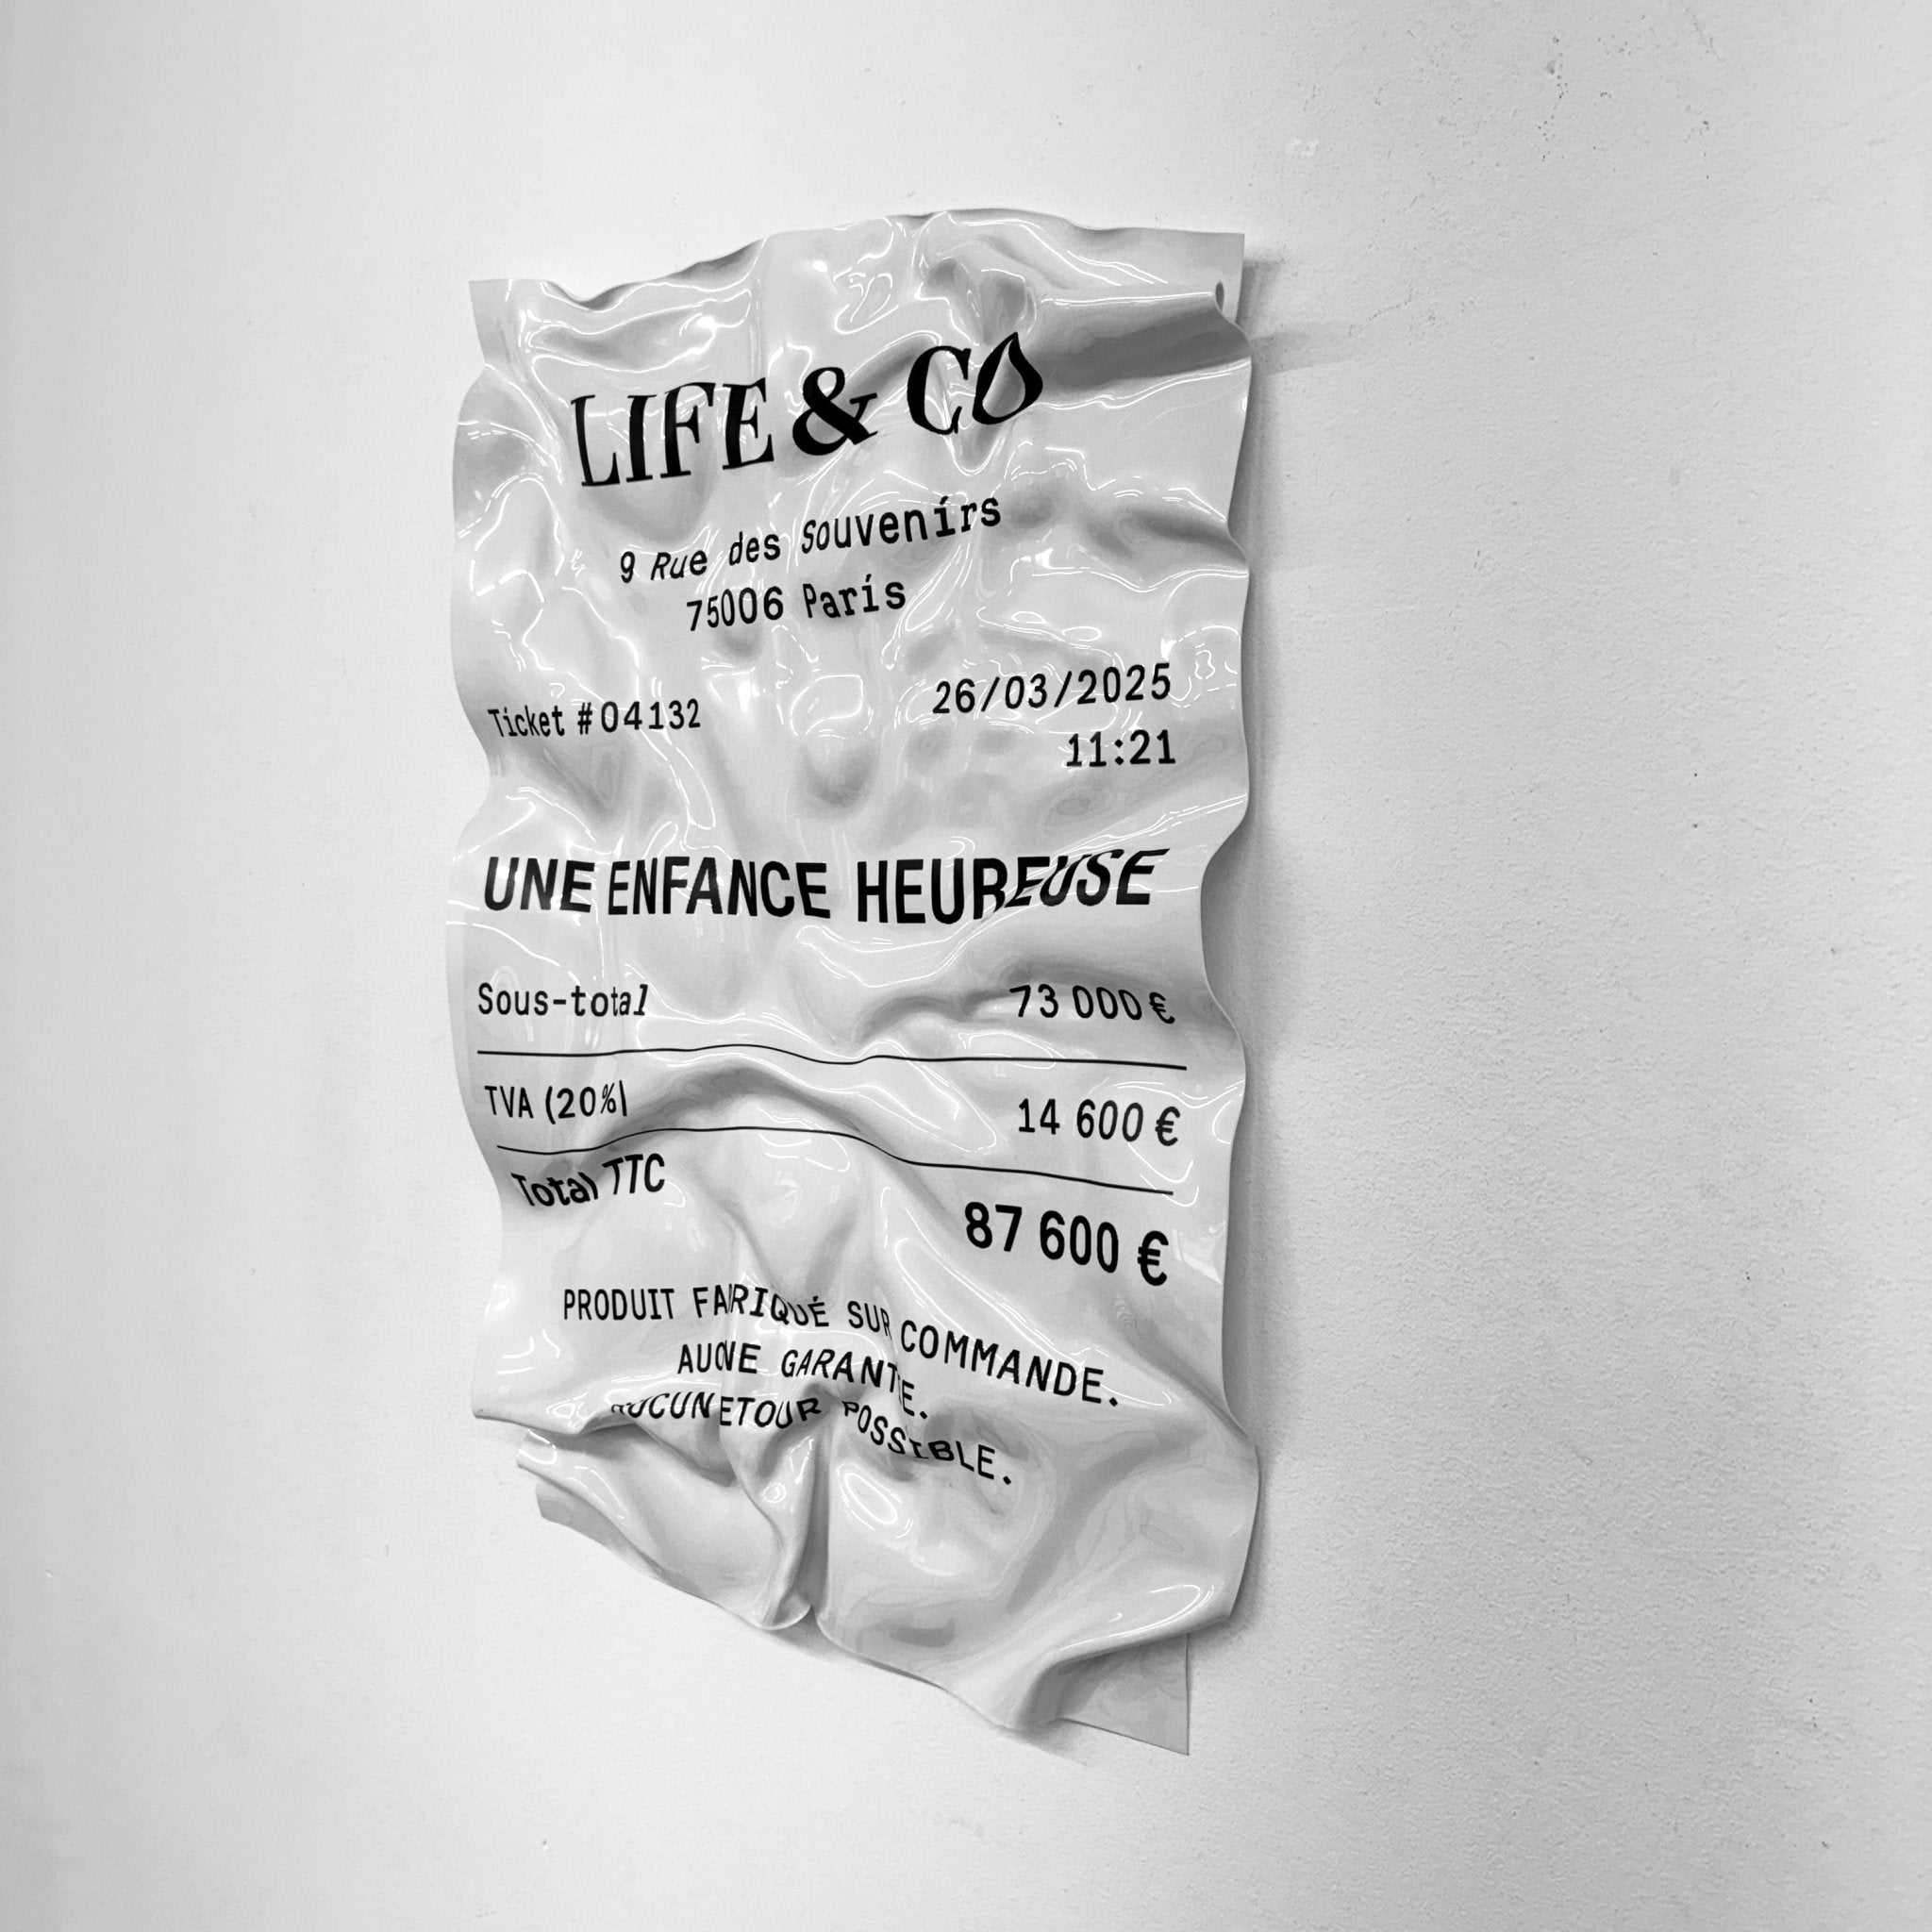 LIFE & CO
9 Rue des Souvenirs
75006 Paris
Ticket #04132
26/03/2025
11:21
UNE ENFANCE HEUREUSE
Sous-total 73 000 €
TVA (20%)
14 600 €
Total TTC
87 600 €
PRODUIT FABRIQUÉ SUR COMMANDE.
AUCUNE GARANTIE.
AUCUN RETOUR POSSIBLE.